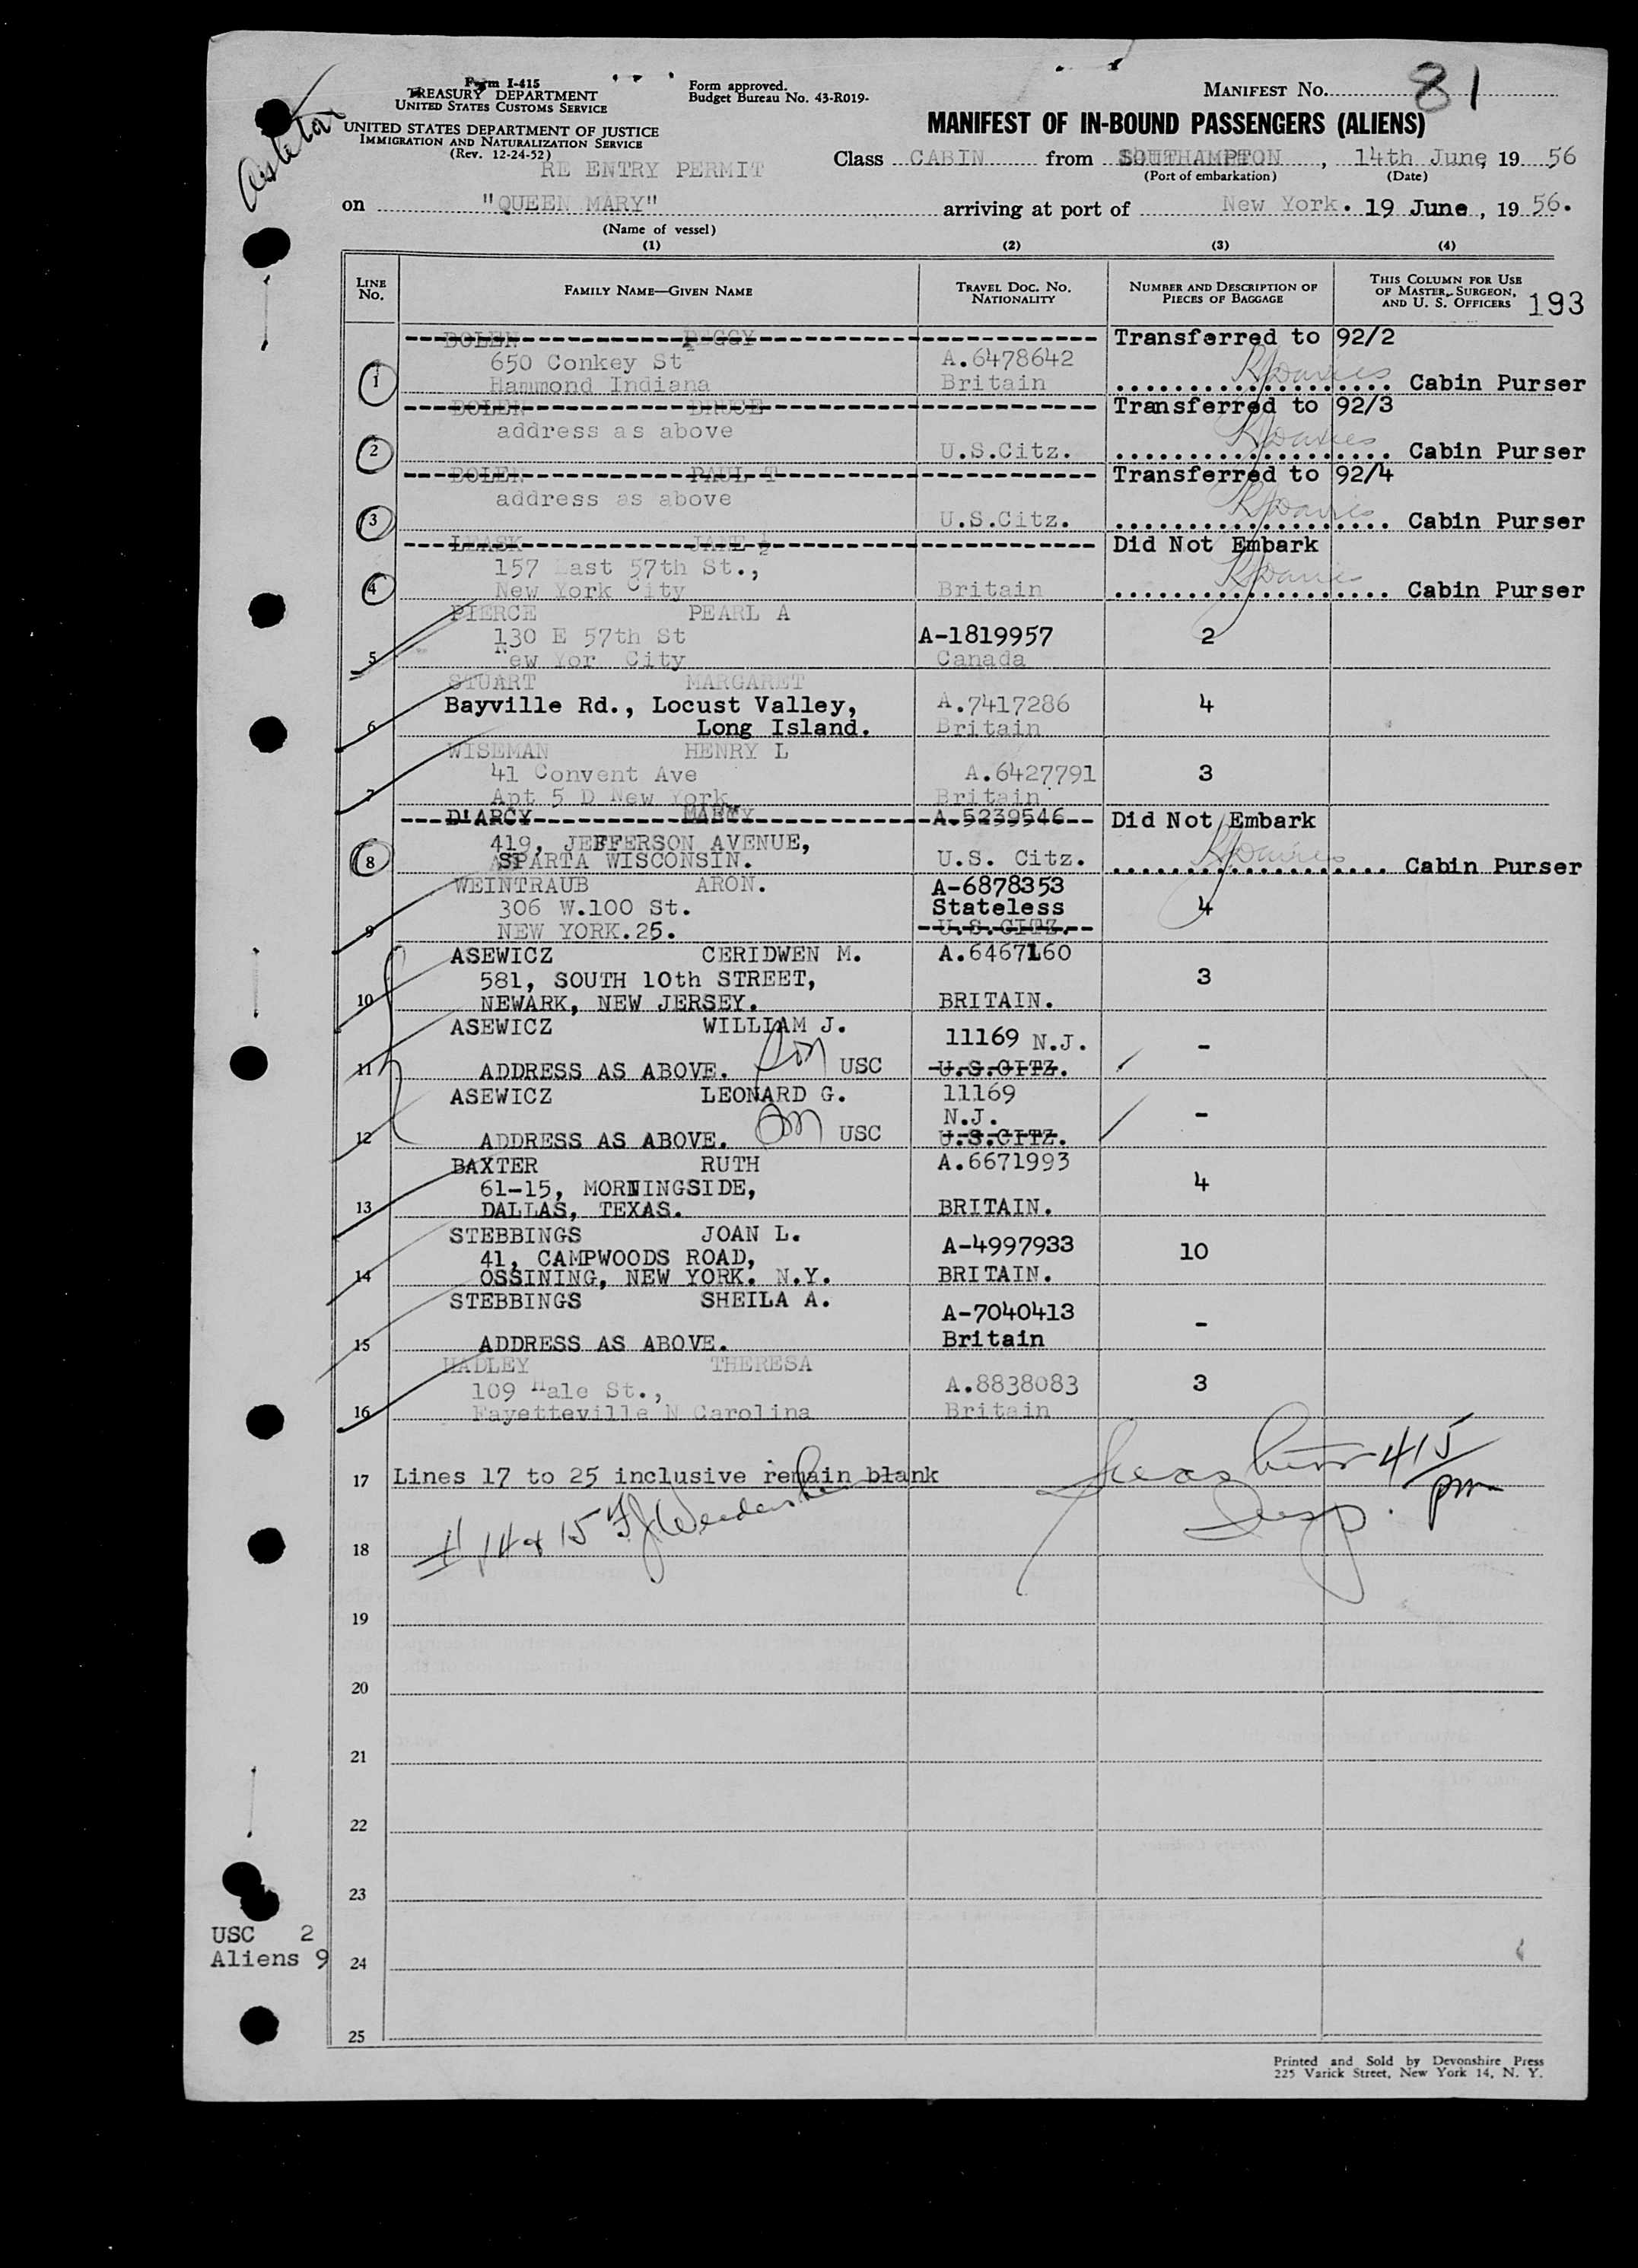 Form I-415
TREASURY DEPARTMENT
UNITED STATES CUSTOMS SERVICE
UNITED STATES DEPARTMENT OF JUSTICE
IMMIGRATION AND NATURALIZATION SERVICE
(Rev. 12-24-52)
Form approved.
Budget Bureau No. 43-R019-
MANIFEST NO. 81
MANIFEST OF IN-BOUND PASSENGERS (ALIENS)
RE ENTRY PERMIT
Class CABIN from SOUTHAMPTON, 14th June, 19 56
(Port of embarkation) (Date)
on "QUEEN MARY" arriving at port of New York. 19 June, 19 56.
(Name of vessel)
(1) (2) (3) (4)
LINE No.
FAMILY NAME—GIVEN NAME
TRAVEL DOC. NO. NATIONALITY
NUMBER AND DESCRIPTION OF PIECES OF BAGGAGE
THIS COLUMN FOR USE OF MASTER, SURGEON, AND U. S. OFFICERS 193
DOLEN PEGGY Transferred to 92/2
650 Conkey St A.6478642
1 Hammond Indiana Britain Cabin Purser
DOLEN BRUCE Transferred to 92/3
address as above
2 U.S.Citz. Cabin Purser
DOLEN PAUL T Transferred to 92/4
address as above
3 U.S.Citz. Cabin Purser
LEASK JANE Did Not Embark
157 East 57th St.,
4 New York City Britain Cabin Purser
PIERCE PEARL A
130 E 57th St A-1819957 2
5 New Yor City Canada
STUART MARGARET
Bayville Rd., Locust Valley, A.7417286 4
6 Long Island. Britain
WISEMAN HENRY L
41 Convent Ave A.6427791 3
7 Apt 5 D New York Britain
D'ARCY A.5239546 Did Not Embark
419, JEFFERSON AVENUE,
8 SPARTA WISCONSIN. U.S. Citz. Cabin Purser
WEINTRAUB ARON. A-6878353
306 W.100 St. Stateless 4
9 NEW YORK.25. U.S.CITZ.
ASEWICZ CERIDWEN M. A.6467160
581, SOUTH 10th STREET, 3
10 NEWARK, NEW JERSEY. BRITAIN.
ASEWICZ WILLIAM J.
Son 11169 N.J. -
11 ADDRESS AS ABOVE. USC U.S.CITZ.
ASEWICZ LEONARD G. 11169
N.J. -
12 ADDRESS AS ABOVE. Son USC U.S.CITZ.
BAXTER RUTH A.6671993
61-15, MORNINGSIDE, 4
13 DALLAS, TEXAS. BRITAIN.
STEBBINGS JOAN L.
41, CAMPWOODS ROAD, A-4997933 10
14 OSSINING, NEW YORK. N.Y. BRITAIN.
STEBBINGS SHEILA A.
A-7040413 -
15 ADDRESS AS ABOVE. Britain
HADLEY THERESA
109 Hale St., A.8838083 3
16 Fayetteville N Carolina Britain
17 Lines 17 to 25 inclusive remain blank
415 pm
Insp.
# 14 & 15
18
19
20
21
22
23
USC 2
Aliens 9
24
25
Printed and Sold by Devonshire Press
225 Varick Street, New York 14, N. Y.